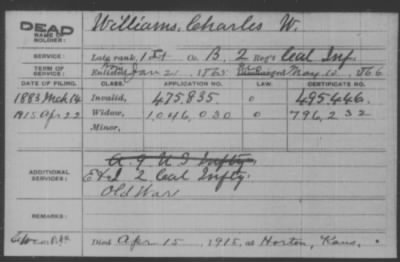 DEAD
NAME OF SOLDIER:
Williams, Charles W.
SERVICE:
Late rank, 1 Lt Co. B, 2 Reg't Cal Inf.
TERM OF SERVICE:
Enlisted Jan 2, 1865 Discharged May 10, 1866
DATE OF FILING. CLASS. APPLICATION NO. LAW. CERTIFICATE NO.
1883 Mch 14 Invalid, 475,835 o 495446.
1915 Apr 22 Widow, 1,046,030 o 796,232
Minor,
ADDITIONAL SERVICES:
A. 9 U S Infty.
E & I 2 Cal Infty.
Old War
REMARKS:
Died Apr. 15, 1915, at Horton, Kans.